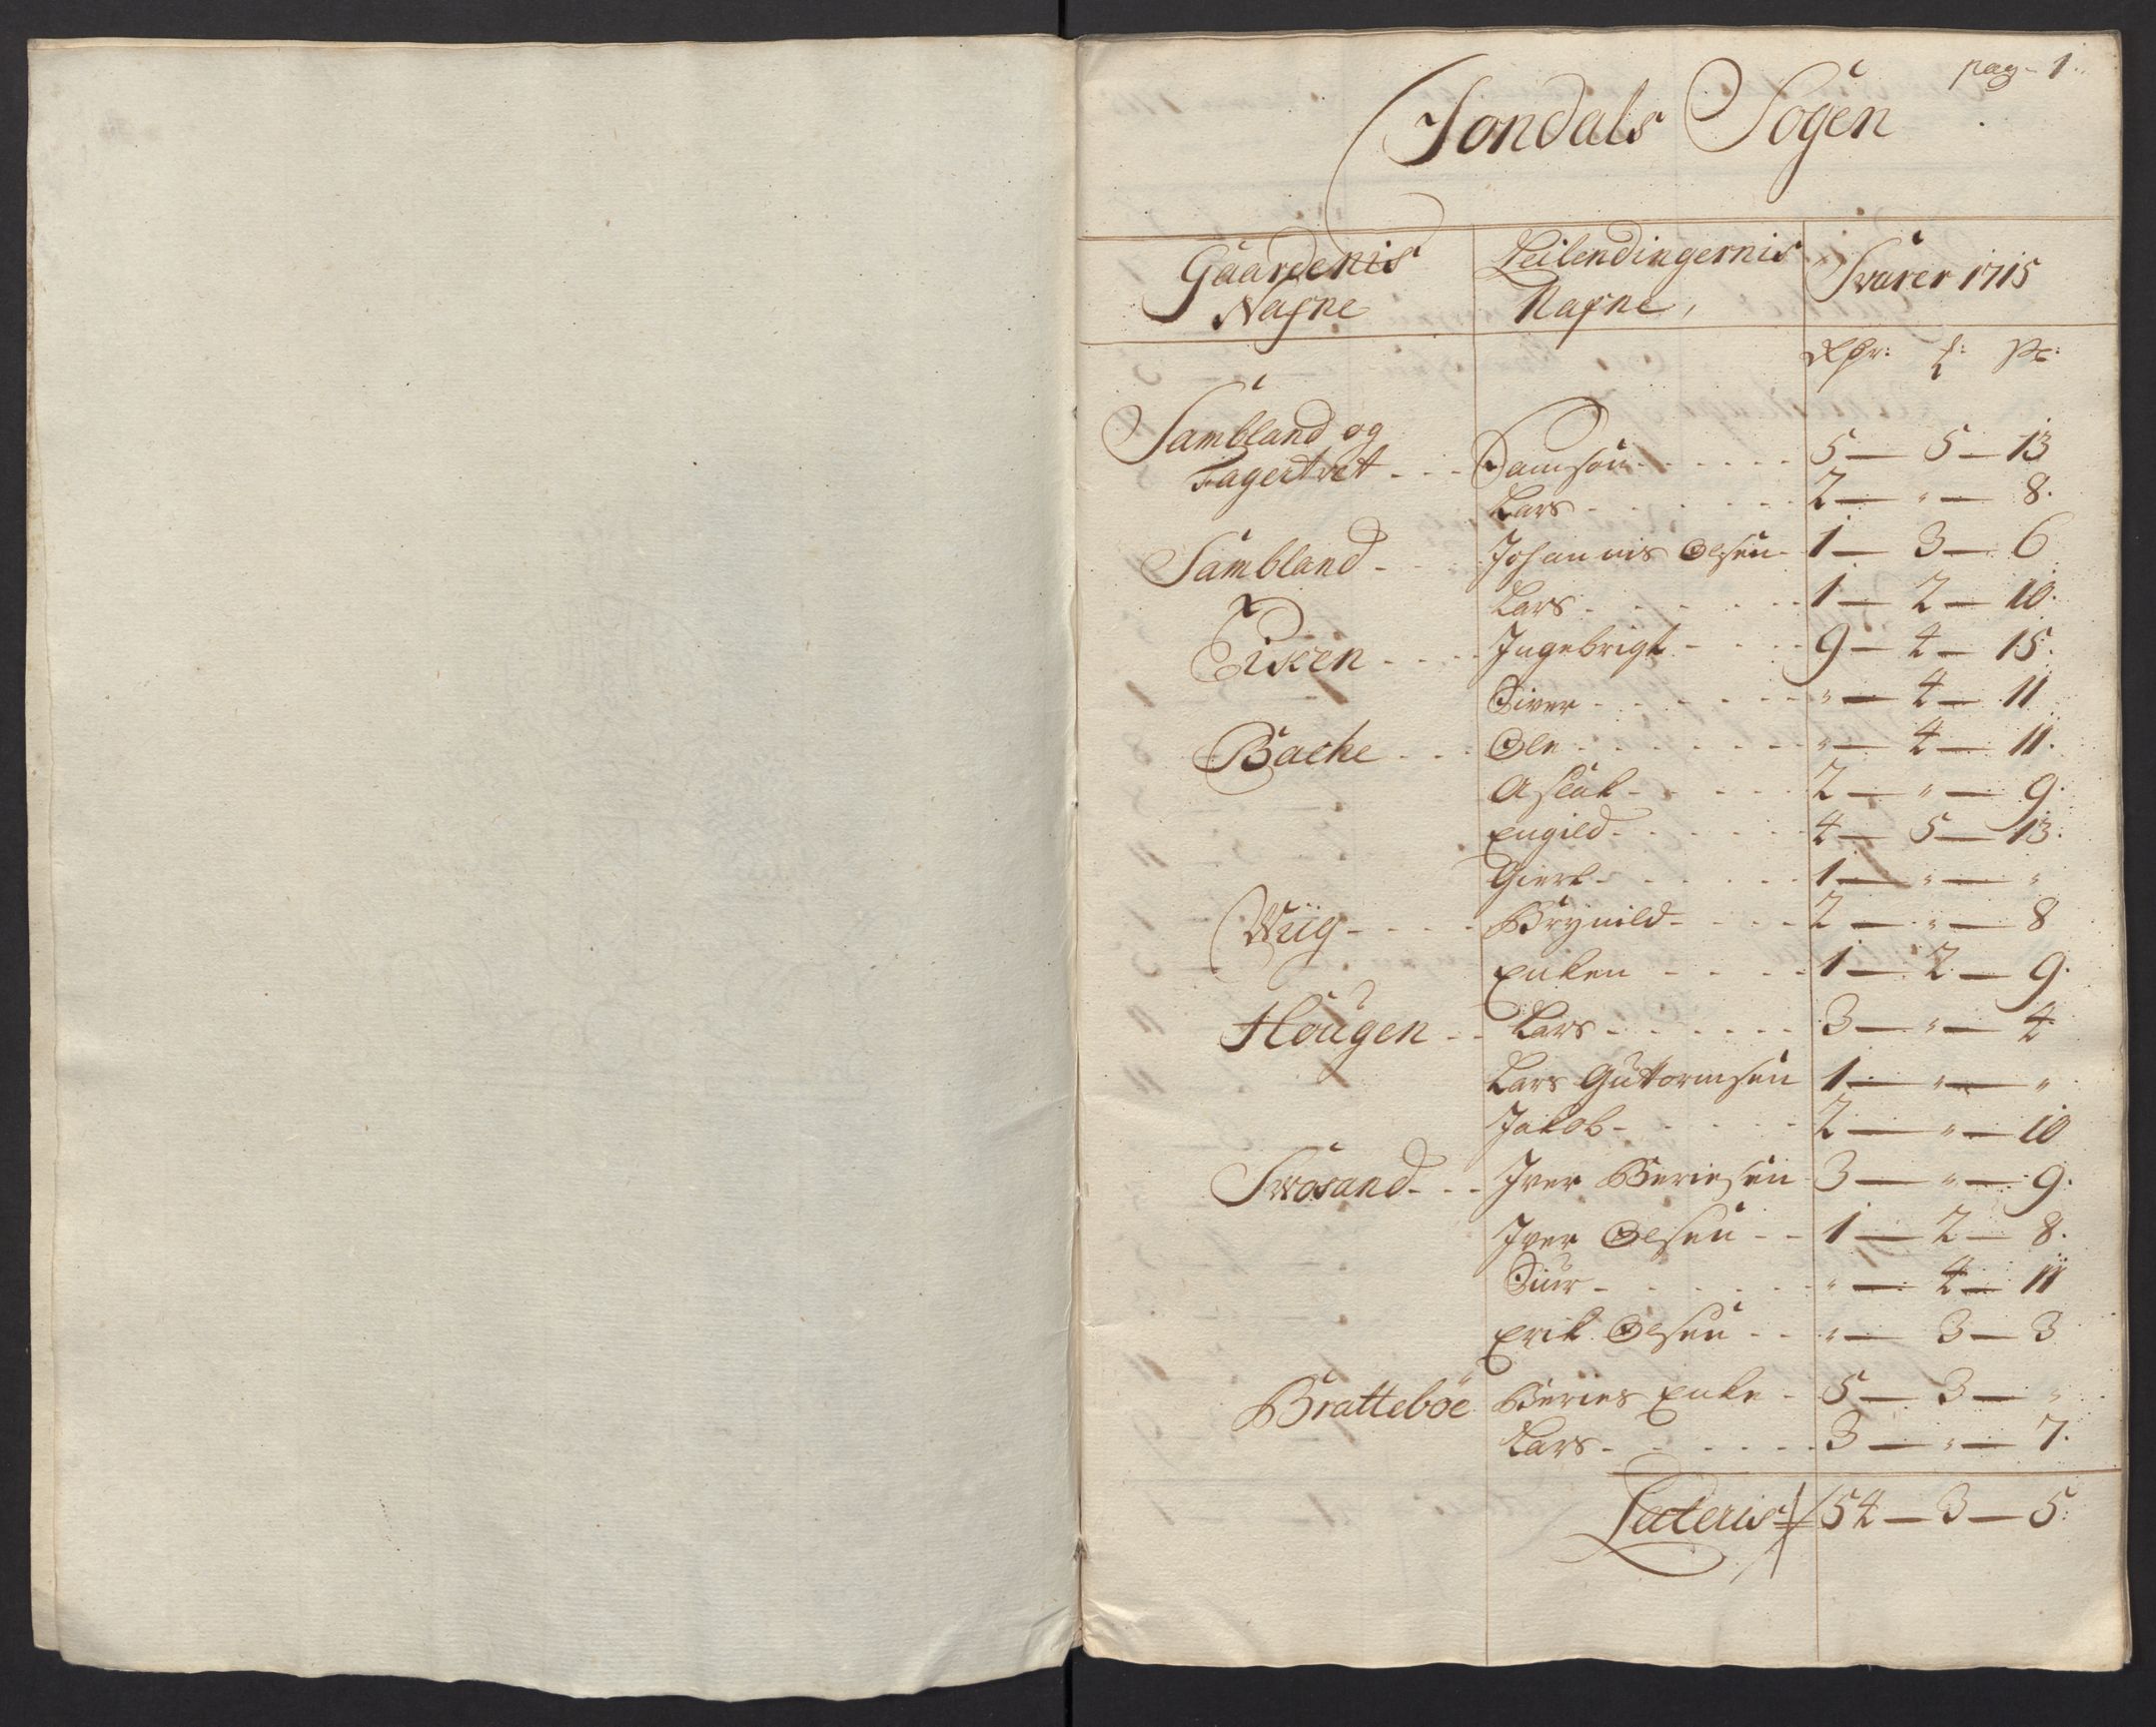 pag- 1.
Jondals Sogen
Gaardenis Nafne
Leilendingernis Nafne,
Svarer 1715
Rdr: ʒ: ß:
Sambland og
Fagertvet - - - Samson - - - - - 5 — 5 — 13
Lars - - - - - 2 — " — 8.
Sambland - - - Johannis Olsen - 1 — 3 — 6
Lars - - - - - 1 — 2 — 10.
Eisen - - - Ingebrigt - - - - 9 — 4 — 15.
Siver - - - - - " — 4 — 11
Bache - - - Ole - - - - - " — 4 — 11.
Aslak - - - - - 2 — " — 9.
Engild - - - - - 4 — 5 — 13.
Giert - - - - - 1 — " — "
Wiig - - - - Brynild - - - - 2 — " — 8
Enken - - - - 1 — 2 — 9.
Hougen - - Lars - - - - - 3 — " — 4
Lars Guttormsen 1 — " — "
Jakob - - - - - 2 — " — 10
Svosand - - - Iver Beriesen 3 — " — 9.
Iver Olsen - - 1 — 2 — 8.
Siur - - - - - " — 4 — 11
Erik Olsen - - " — 3 — 3
Bratteböe Beries Enke - 5 — 3 — "
Lars - - - - - 3 — " — 7.
Lateris 54 — 3 — 5: